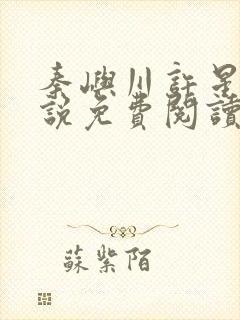 秦嶼川許星
說免費閱讀
蘇紫陌